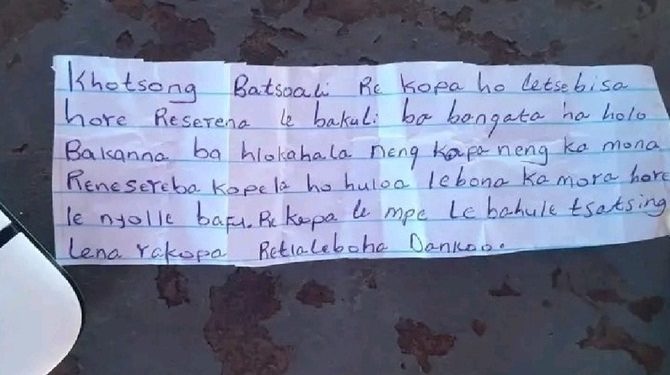 Khotsong Batsoali Re kopa ho letsebisa
hore Reserena le bakuli ba bangata ha holo
Bakanna ba hlokahala neng kapa neng ka mona
Renesereba kopela ho huloa lebona ka mora hore
le nyolle bafu. Re kopa le mpe le bahule tsatsing
lena rakopa Retlaleboha Dankoo.